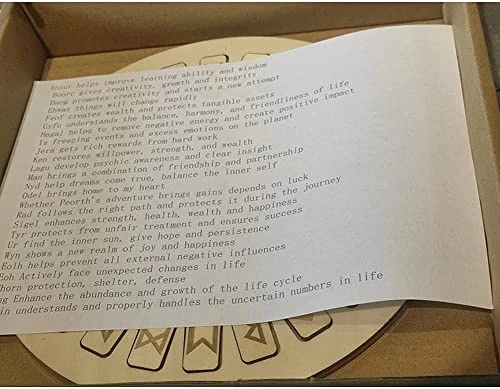 Ansur helps improve learning ability and wisdom
Beorc gives creativity, growth and integrity
Daeg promotes creativity and starts a new attempt
Ehwaz things will change rapidly
Feof creates wealth and protects tangible assets
Gyfu understands the balance, harmony, and friendliness of life
Hagal helps to remove negative energy and create positive impact
Is freezing events and excess emotions on the planet
Jera gets rich rewards from hard work
Ken restores willpower, strength, and wealth
Lagu develop psychic awareness and clear insight
Man brings a combination of friendship and partnership
Nyd help dreams come true, balance the inner self
Odel brings home to my heart
Whether Peorth's adventure brings gains depends on luck
Rad follows the right path and protects it during the journey
Sigel enhances strength, health, wealth and happiness
Tyr protects from unfair treatment and ensures success
Ur find the inner sun, give hope and persistence
Wyn shows a new realm of joy and happiness
Eolh helps prevent all external negative influences
Eoh Actively face unexpected changes in life
horn protection, shelter, defense
ng Enhance the abundance and growth of the life cycle
in understands and properly handles the uncertain numbers in life